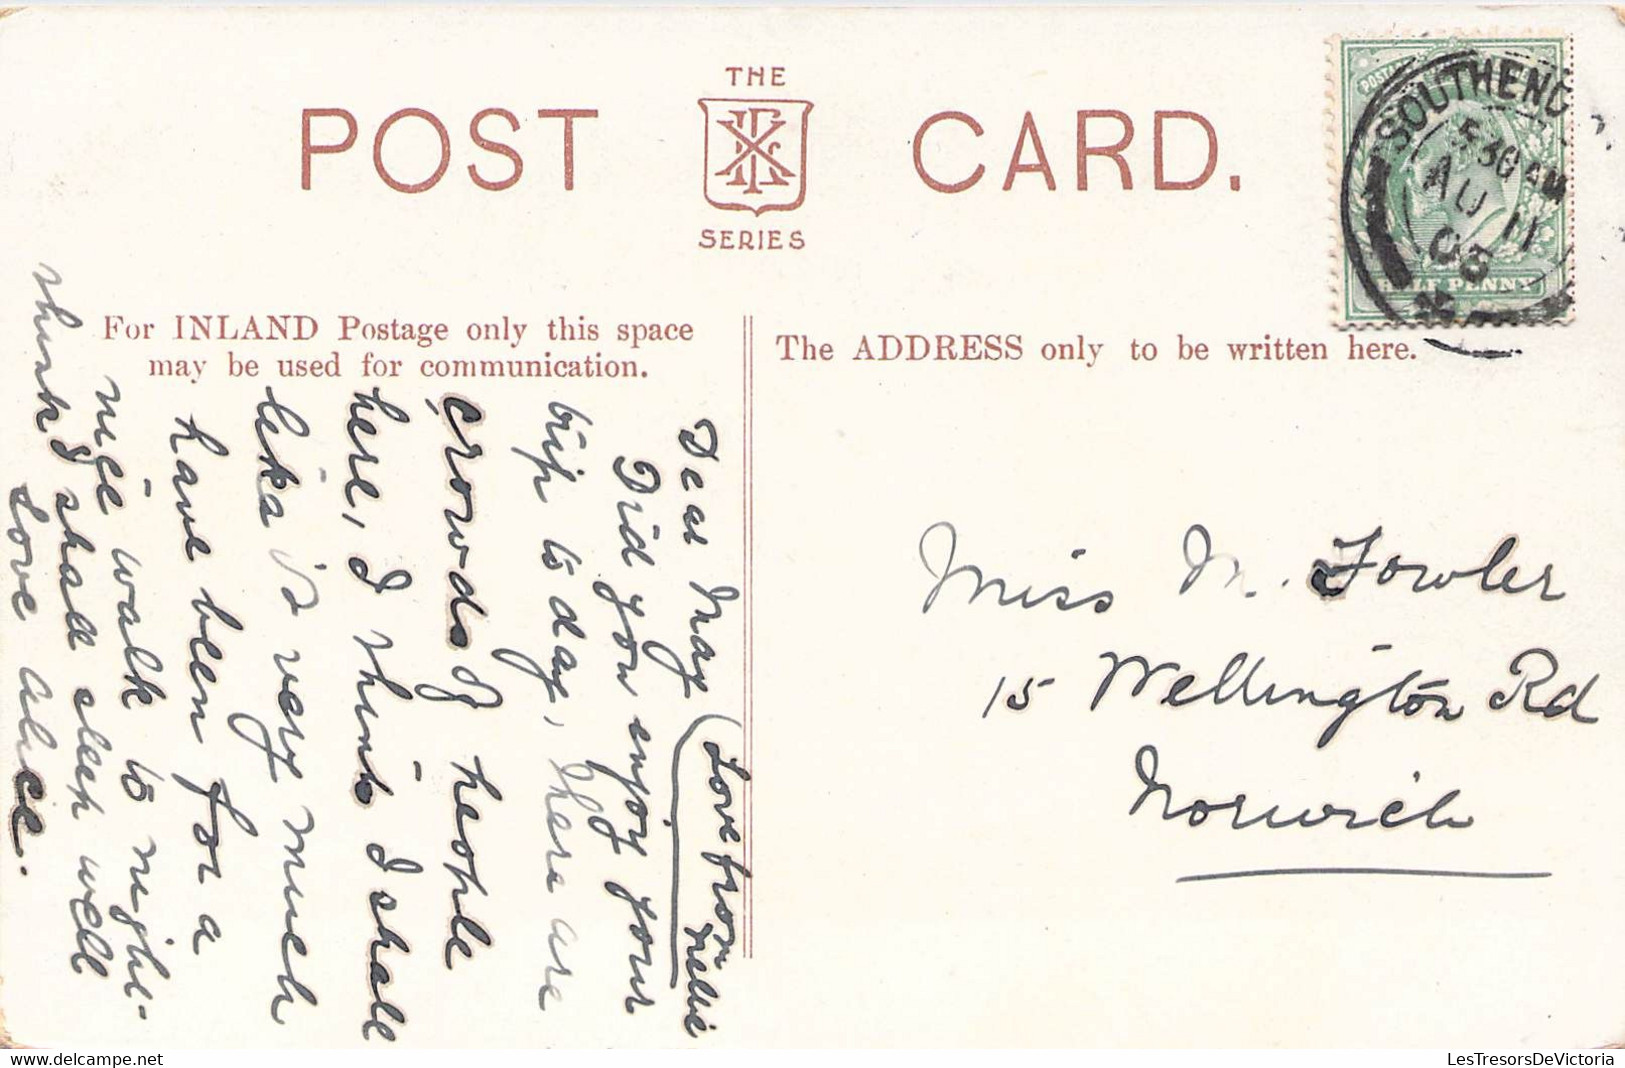 THE
POST CARD.
SERIES
SOUTHEND
5.30 AM
AU 11
05
HALF PENNY
For INLAND Postage only this space
may be used for communication.
The ADDRESS only to be written here.
Dear May
Did you enjoy your
trip to day, there are
crowds of people
here, I think I shall
like it very much
have been for a
nice walk to night-
think I shall sleep well
Love Alice.
(Love from
Nellie
Miss M. Fowler
15 Wellington Rd
Norwich
LesTresorsDeVictoria
https://www.delcampe.net